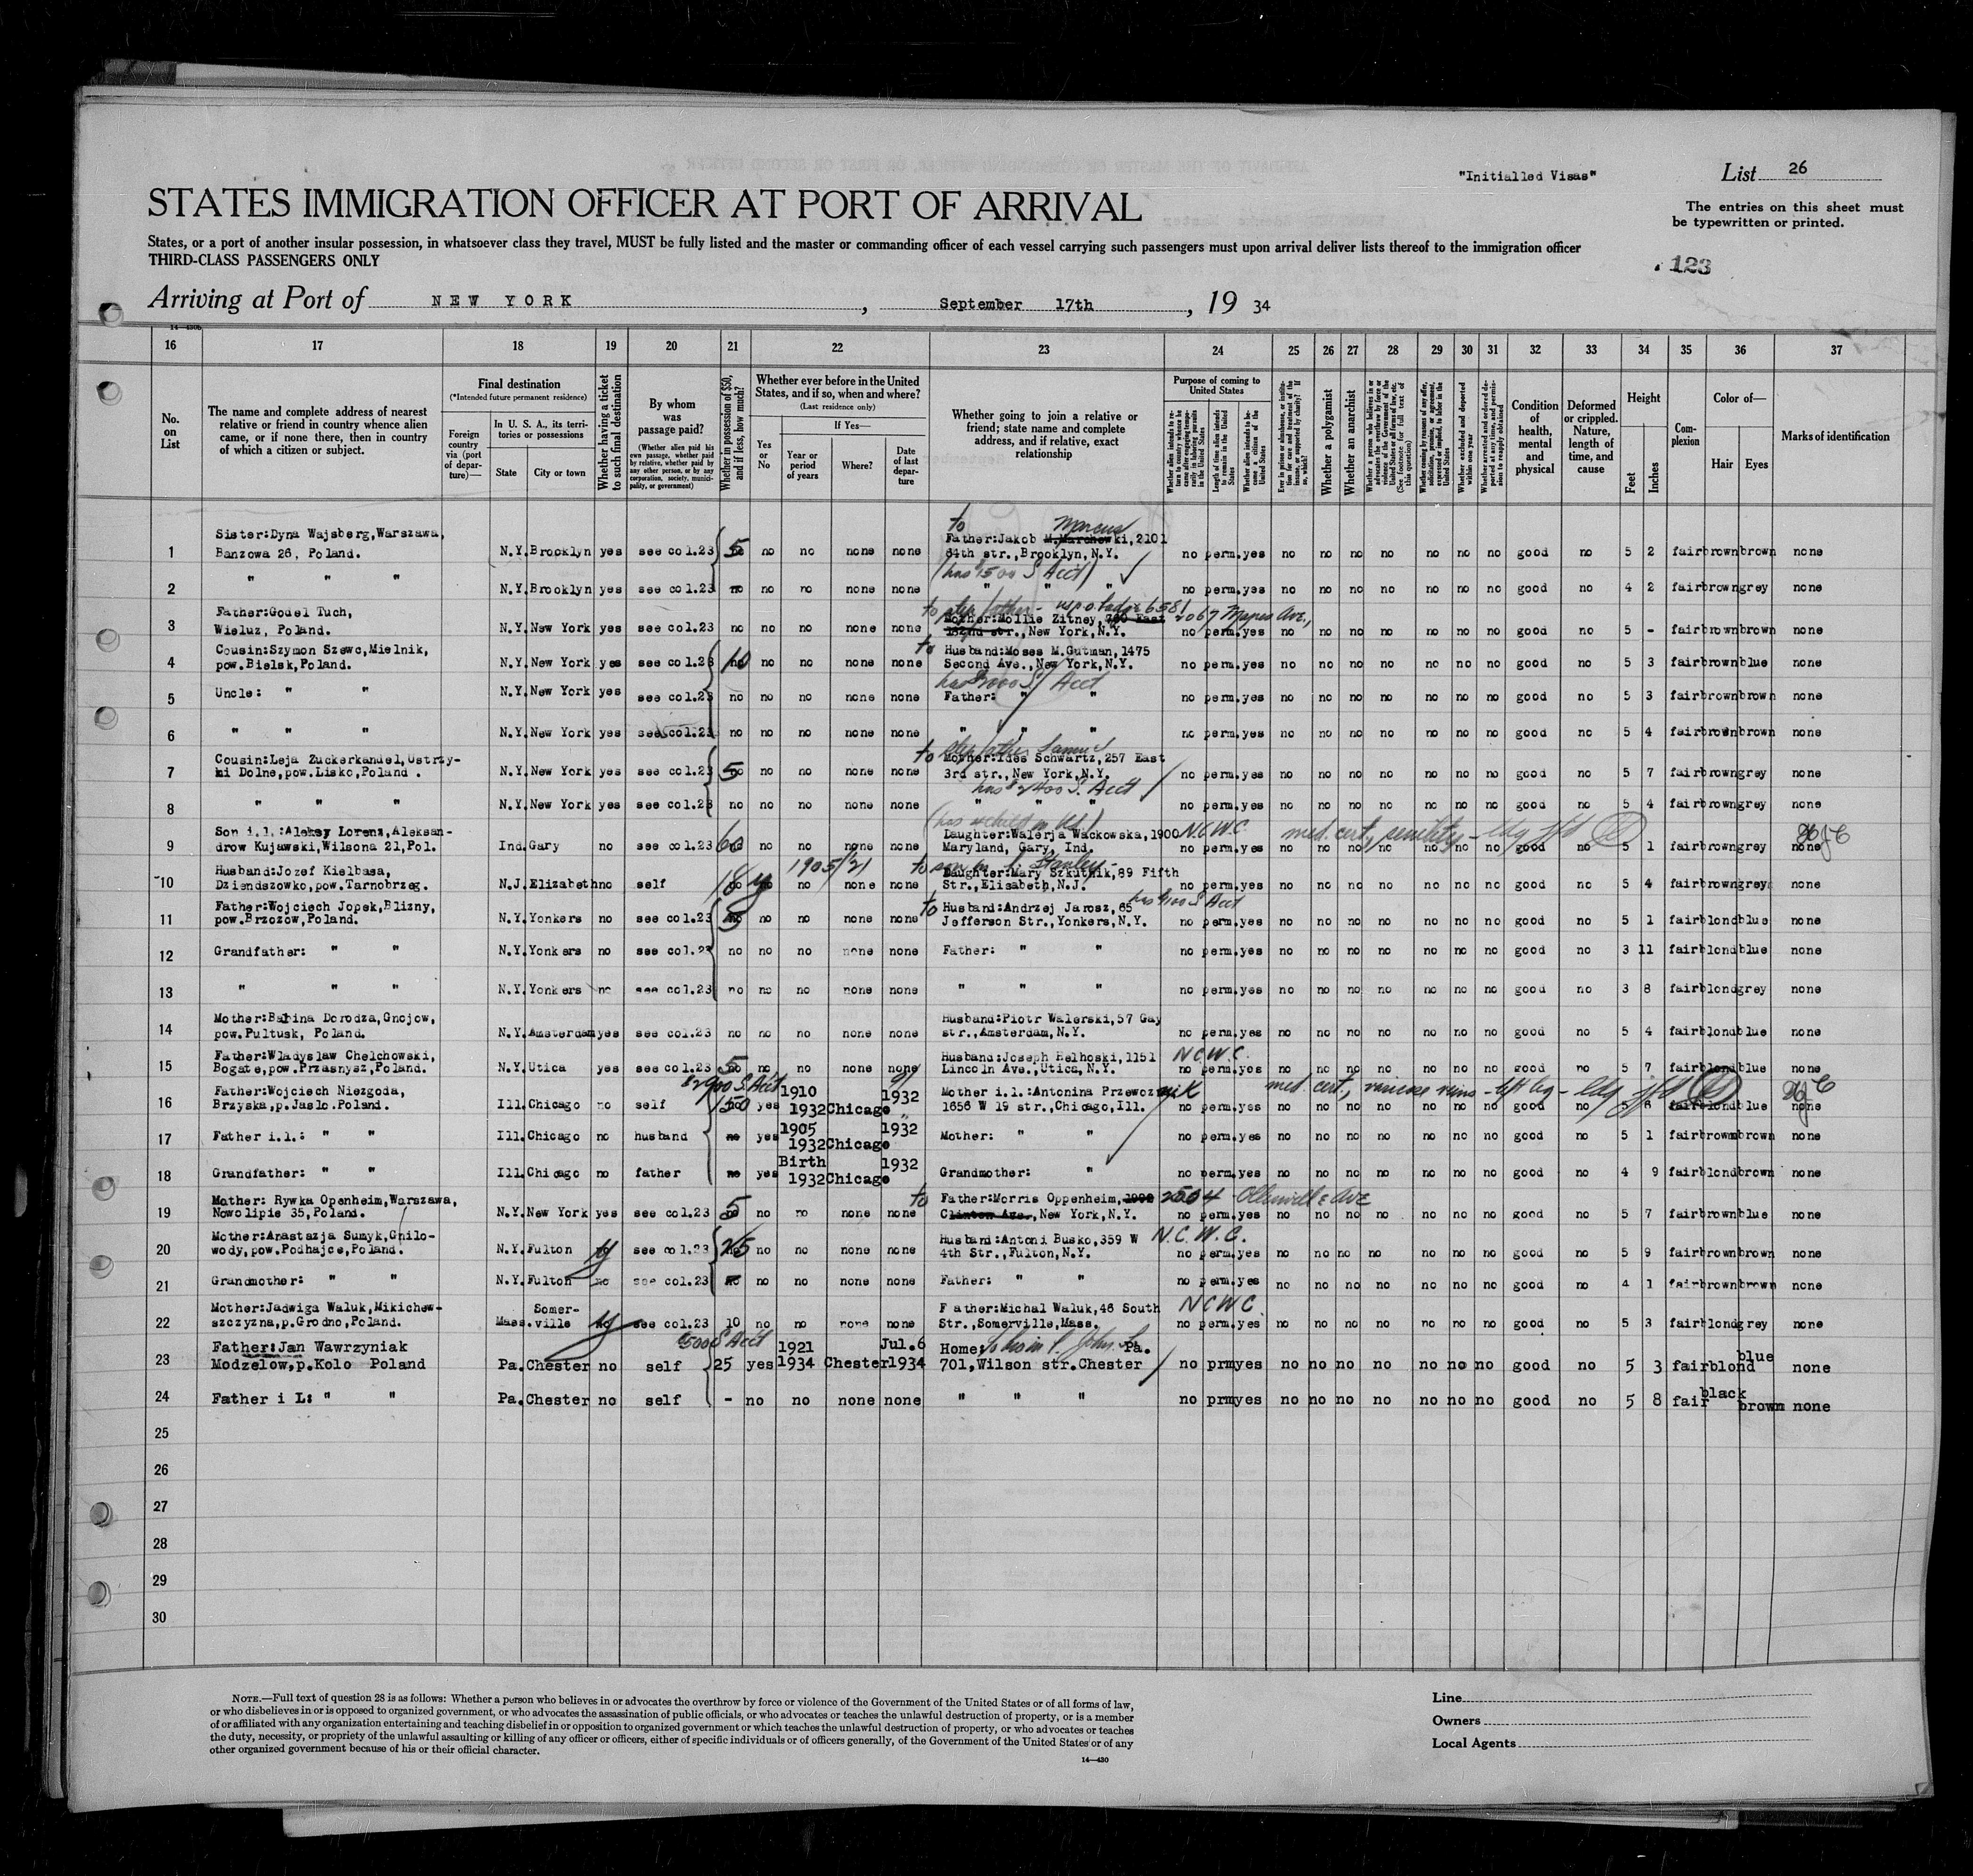 "Initialled Visas"
List 26
STATES IMMIGRATION OFFICER AT PORT OF ARRIVAL
The entries on this sheet must
be typewritten or printed.
States, or a port of another insular possession, in whatsoever class they travel, MUST be fully listed and the master or commanding officer of each vessel carrying such passengers must upon arrival deliver lists thereof to the immigration officer
THIRD-CLASS PASSENGERS ONLY
123
Arriving at Port of NEW YORK, September 17th, 19 34
14—430b
16 17 18 19 20 21 22 23 24 25 26 27 28 29 30 31 32 33 34 35 36 37
No. on List
The name and complete address of nearest relative or friend in country whence alien came, or if none there, then in country of which a citizen or subject.
Final destination
(*Intended future permanent residence)
Foreign country via (port of departure)—
In U. S. A., its territories or possessions
State
City or town
Whether having a ticket to such final destination
By whom was passage paid?
(Whether alien paid his own passage, whether paid by relative, whether paid by any other person, or by any corporation, society, municipality, or government)
Whether in possession of $50, and if less, how much?
Whether ever before in the United States, and if so, when and where?
(Last residence only)
Yes or No
If Yes—
Year or period of years
Where?
Date of last departure
Whether going to join a relative or friend; state name and complete address, and if relative, exact relationship
Purpose of coming to United States
Whether alien intends to return to country whence he came after engaging temporarily in laboring pursuits in the United States
Length of time alien intends to remain in the United States
Whether alien intends to become a citizen of the United States
Ever in prison or almshouse, or institution for care and treatment of the insane, or supported by charity? If so, which?
Whether a polygamist
Whether an anarchist
Whether a person who believes in or advocates the overthrow by force or violence of the Government of the United States or all forms of law, etc. (See footnote for full text of this question)
Whether coming by reasons of any offer, solicitation, promise, or agreement, expressed or implied, to labor in the United States
Whether excluded and deported within one year
Whether arrested and ordered deported at any time, and permission to reapply obtained
Condition of health, mental and physical
Deformed or crippled. Nature, length of time, and cause
Height
Feet
Inches
Complexion
Color of—
Hair
Eyes
Marks of identification
to Marcus
1 Sister:Dyna Wajsberg,Warszawa, Banzowa 26, Poland. N.Y. Brooklyn yes see col.23 5 no no none none Father:Jakob M.Marchowki,2101 64th str.,Brooklyn,N.Y. no perm. yes no no no no no no no good no 5 2 fair brown brown none
(has $1500 S Acct)
2 " " " N.Y. Brooklyn yes see col.23 no no no none none " " " no perm. yes no no no no no no no good no 4 2 fair brown grey none
to step father
3 Father:Godel Tuch, Wieluz, Poland. N.Y. New York yes see col.23 no no no none none Mother:Mollie Zitney, 780 East 182nd str.,New York,N.Y. 2067 Mapes Ave., no perm. yes no no no no no no no good no 5 - fair brown brown none
4 Cousin:Szymon Szewc,Mielnik, pow.Bielsk,Poland. N.Y. New York yes see col.23 10 no no none none to Husband:Moses M.Gutman, 1475 Second Ave.,New York,N.Y. no perm. yes no no no no no no no good no 5 3 fair brown blue none
5 Uncle: " " N.Y. New York yes see col.23 no no no none none Father: " " no perm. yes no no no no no no no good no 5 3 fair brown brown none
6 " " " N.Y. New York yes see col.23 no no no none none " " " no perm. yes no no no no no no no good no 5 4 fair brown brown none
to step father Samuel
7 Cousin:Leja Zuckerkandel,Ustrzyki Dolne,pow.Lisko,Poland. N.Y. New York yes see col.23 5 no no none none Mother:Ides Schwartz,257 East 3rd str.,New York,N.Y. no perm. yes no no no no no no no good no 5 7 fair brown grey none
has $2400 S. Acct
8 " " " N.Y. New York yes see col.23 no no no none none " " " no perm. yes no no no no no no no good no 5 4 fair brown grey none
9 Son i.l.:Aleksy Lorenz,Aleksandrow Kujawski,Wilsona 21,Pol. Ind. Gary no see col.23 60 no no none none Daughter:Walerja Wackowska,1900 Maryland, Gary, Ind. N.C.W.C. med. cert, senility no perm. yes no no no no no no no good no 5 1 fair brown grey none
10 Husband:Jozef Kielbasa, Dziendszowko,pow.Tarnobrzeg. N.J. Elizabeth no self 18 y 1905/21 no none none to son in l. Stanley Daughter:Mary Szkutnik,89 Fifth Str.,Elisabeth,N.J. no perm. yes no no no no no no no good no 5 4 fair brown grey none
has $1100 S Acct
11 Father:Wojciech Jopek,Blizny, pow.Brzozow,Poland. N.Y. Yonkers no see col.23 5 no no none none to Husband:Andrzej Jarosz,65 Jefferson Str.,Yonkers,N.Y. no perm. yes no no no no no no no good no 5 1 fair blond blue none
12 Grandfather: " " N.Y. Yonkers no see col.23 no no no none none Father: " " no perm. yes no no no no no no no good no 3 11 fair blond blue none
13 " " " N.Y. Yonkers no see col.23 no no no none none " " " no perm. yes no no no no no no no good no 3 8 fair blond grey none
14 Mother:Balbina Dorodza,Gnojow, pow.Pultusk, Poland. N.Y. Amsterdam yes see col.23 no no no none none Husband:Piotr Walerski,57 Gay str.,Amsterdam,N.Y. no perm. yes no no no no no no no good no 5 4 fair blond blue none
15 Father:Wladyslaw Chelchowski, Bogate,pow.Przasnysz,Poland. N.Y. Utica yes see col.23 5 no no none none Husband:Joseph Helhoski,1151 Lincoln Ave.,Utica,N.Y. N.C.W.C. no perm. yes no no no no no no no good no 5 7 fair blond blue none
$2900 S. Acct
16 Father:Wojciech Niezgoda, Brzyska,p.Jaslo.Poland. Ill. Chicago no self 150 yes 1910 1932 Chicago 1932 Mother i.l.:Antonina Przewoznik 1656 W 19 str.,Chicago,Ill. med. cert, varicose veins - left leg no perm. yes no no no no no no no good no 5 8 fair blond blue none
17 Father i.l.: " " Ill. Chicago no husband no yes 1905 1932 Chicago 1932 Mother: " " no perm. yes no no no no no no no good no 5 1 fair brown brown none
18 Grandfather: " " Ill. Chicago no father no yes Birth 1932 Chicago 1932 Grandmother: " no perm. yes no no no no no no no good no 4 9 fair blond brown none
19 Mother: Rywka Openheim,Warszawa, Nowolipie 35,Poland. N.Y. New York yes see col.23 5 no no none none to Father:Morris Oppenheim, Clinton Ave.,New York,N.Y. 2504 Olinville Ave no perm. yes no no no no no no no good no 5 7 fair brown blue none
20 Mother:Anastazja Sumyk,Gnilowody,pow.Podhajce,Poland. N.Y. Fulton y see col.23 25 no no none none Husband:Antoni Busko,359 W 4th Str.,Fulton,N.Y. N.C.W.C. no perm. yes no no no no no no no good no 5 9 fair brown brown none
21 Grandmother: " " N.Y. Fulton no see col.23 no no no none none Father: " " no perm. yes no no no no no no no good no 4 1 fair brown brown none
22 Mother:Jadwiga Waluk,Mikichewszczyzna,p.Grodno,Poland. Mass. Somerville y see col.23 10 no no none none Father:Michal Waluk,46 South Str.,Somerville,Mass. N.C.W.C. no perm. yes no no no no no no no good no 5 3 fair blond grey none
$500 S Acct
23 Father:Jan Wawrzyniak Modzelow,p.Kolo Poland Pa. Chester no self 25 yes 1921 1934 Chester Jul.6 1934 Home: Pa. 701,Wilson str.Chester no prm yes no no no no no no no good no 5 3 fair blond blue none
24 Father i L: " " Pa. Chester no self - no no none none " " " no prm yes no no no no no no no good no 5 8 fair black brown none
25
26
27
28
29
30
NOTE.—Full text of question 28 is as follows: Whether a person who believes in or advocates the overthrow by force or violence of the Government of the United States or of all forms of law,
or who disbelieves in or is opposed to organized government, or who advocates the assassination of public officials, or who advocates or teaches the unlawful destruction of property, or is a member
of or affiliated with any organization entertaining and teaching disbelief in or opposition to organized government or which teaches the unlawful destruction of property, or who advocates or teaches
the duty, necessity, or propriety of the unlawful assaulting or killing of any officer or officers, either of specific individuals or of officers generally, of the Government of the United States or of any
other organized government because of his or their official character.
14—430
Line
Owners
Local Agents